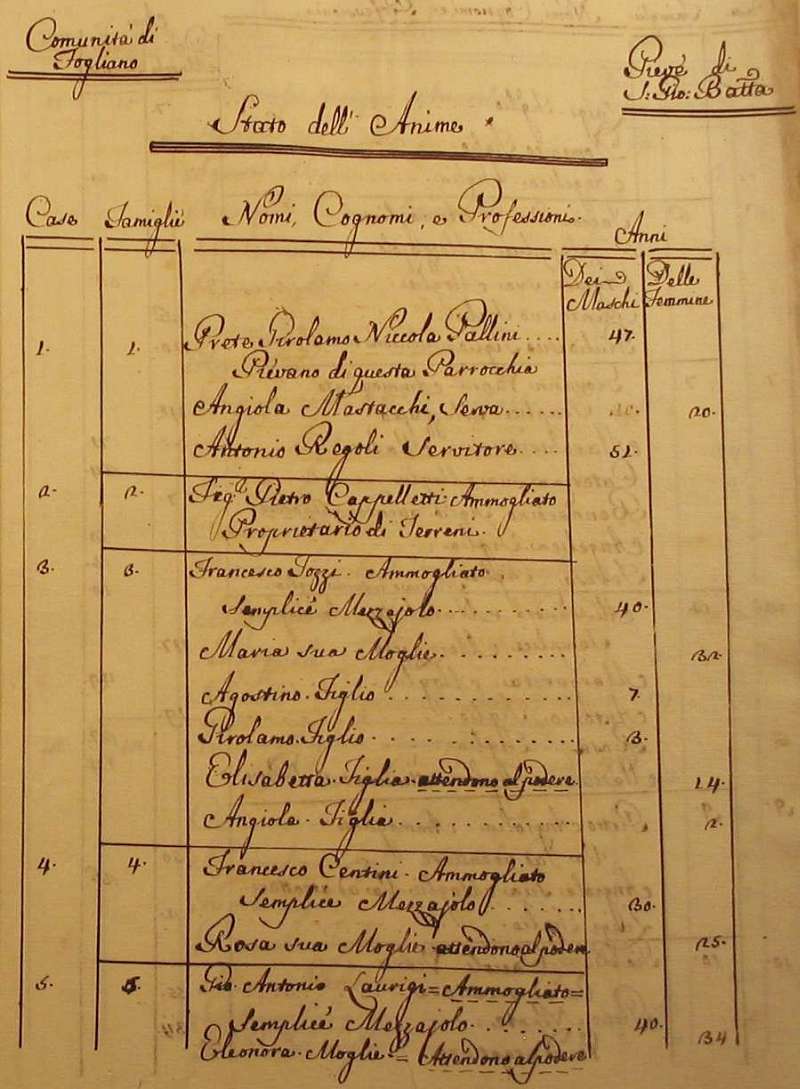 Comunità di
Fogliano
Pieve di
S: Gio: Batta
Stato dell' Anime
Case Famiglie Nomi, Cognomi, e Professioni. Anni
Dei Maschi Delle Femmine
1. 1. Prete Girolamo Niccola Pallini.... 47.
Pievano di questa Parrocchia
Angiola Mastacchi, Serva...... 20.
Antonio Regoli Servitore.... 51.
2. 2. Pietro Cappelletti Ammogliato
Proprietario di Terreni.
3. 3. Francesco Tozzi. Ammogliato
Semplice Mezzajolo.......... 40.
Maria sua Moglie......... 32.
Agostino. Figlio........... 7.
Girolamo. Figlio........... 3.
Elisabetta. Figlia. attendono al podere. 14.
Angiola. Figlia.......... 2.
4. 4. Francesco Centini. Ammogliato
Semplice Mezzajolo....... 30.
Rosa sua Moglie attendono al podere 25.
5. 5. Gio. Antonio Laurigi = Ammogliato =
Semplice Mezzajolo....... 40.
Eleonora. Moglie = Attendono al podere 34